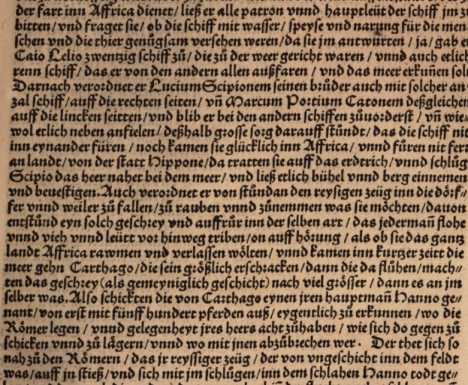 der fart inn Affrica dienet / ließ er alle patron vnnd hauptleüt der schiff jm zů
bitten / vnd fraget sie / ob die schiff mit wasser / speyse vnd narung für die men
schen vnd die thier genůgsam versehen weren / da sie jm antwurten / ja / gab er
Caio Lelio zwentzig schiff zů / die zů der weer gericht waren / vnnd auch etlich
renn schiff / das er von den andern allen außfaren / vnd das meer erkuñen sol
Darnach verordnet er Lucium Scipionem seinen brůder auch mit solcher an
zal schiff / auff die rechten seiten / vñ Marcum Portium Catonem deßgleichen
auff die lincken seitten / vnd blib er bei den andern schiffen zůuorderst / vñ wie
wol etlich neben anfielen / deßhalb grosse sorg darauff stůndt / das die schiff nit
inn eynander füren / noch kamen sie glücklich inn Affrica / vnnd füren nit fer
an landt / von der statt Hippone / da tratten sie auff das erdtrich / vnnd schlůg
Scipio das heer naher bei dem meer / vnd ließ etlich bühel vnnd berg einnemen
vnd beuestigen. Auch verordnet er von stůndan den reysigen zeüg inn die dörf /
fer vnnd weiler zů fallen / zů rauben vnnd zůnemmen was sie möchten / dauon
entstůnd eyn solch geschrey vnd auffrůr inn der selben art / das jederman̄ flohe
vnnd vich vnnd leütt vor hinweg triben / on auff hörung / als ob sie das gantz
landt Affrica rawmen vnd verlassen wölten / vnnd kamen inn kurtzer zeitt die
meer gehn Carthago / die sein größlich erschracken / dann die da flůhen / mach-
ten das geschrey (als gemeyniglich geschicht) nach viel grösser / dann es an jm
selber was. Also schickten die von Carthago eynen jren hauptman̄ Hanno ge-
nant / von erst mit fünff hundert pferden auß / eygentlich zů erkunnen / wo die
Römer legen / vnnd gelegenheyt jres heers acht zůhaben / wie sich do gegen zů
schicken vnnd zů lägern / vnnd wo mit jnen abzůbrechen wer. Der thet sich so
nah zů den Römern / das jr reyssiger zeüg / der von vngeschicht inn dem feldt
was / auff jn stieß / vnd sich mit jm schlůgen / inn dem schlahen Hanno todt ge-